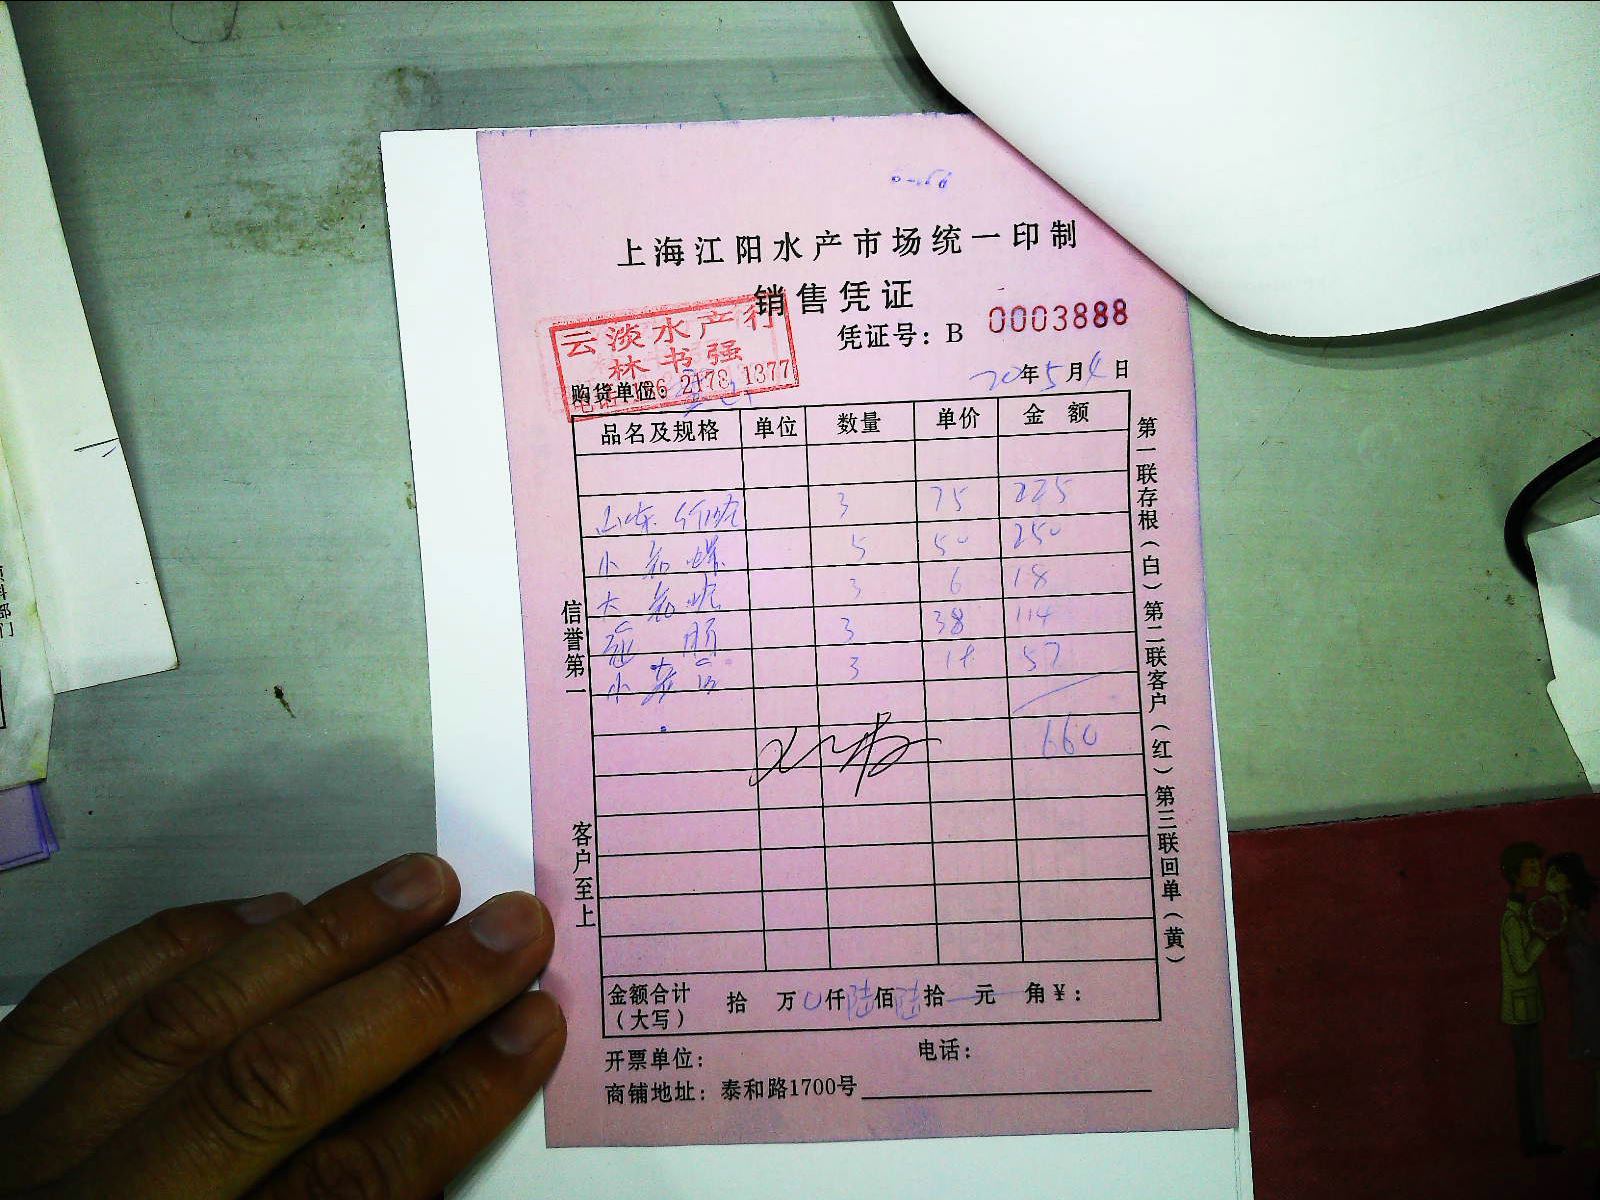 上海江阳水产市场统一印制
销售凭证
凭证号：B 0003888
云淡水产行
林书强
电话：136 2178 1377
购货单位：
20年5月4日
品名及规格 单位 数量 单价 金额
山东 3 75 225
小 5 50 250
大 3 6 18
3 38 114
小 3 57
660
金额合计（大写） 拾 万 0仟陆佰陆拾 元 角¥：
开票单位： 电话：
商铺地址：泰和路1700号
信誉第一
客户至上
第一联存根（白）第二联客户（红）第三联回单（黄）